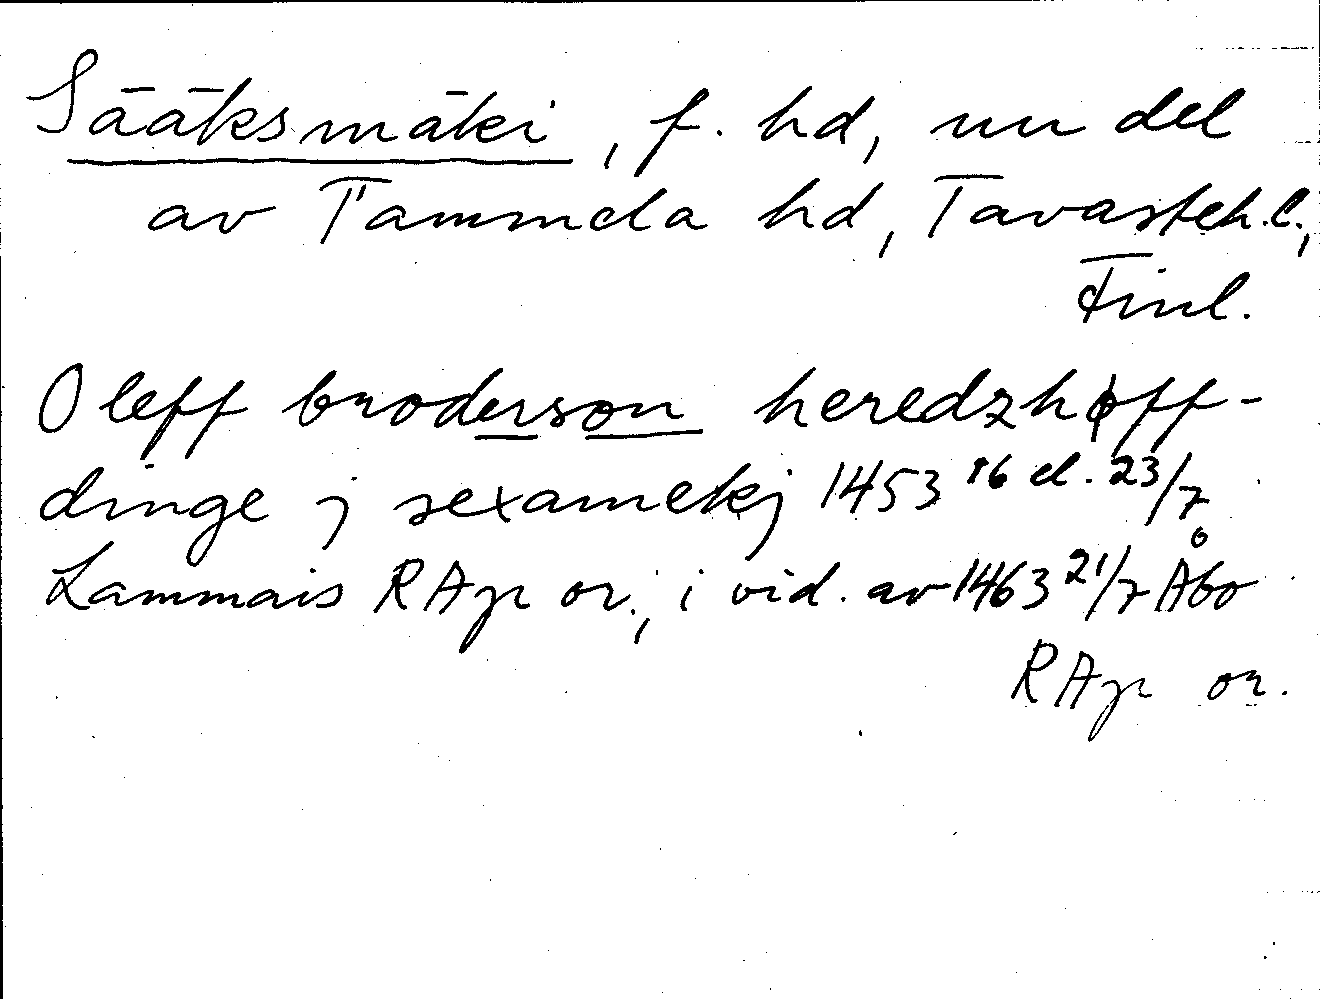 Sääksmäki, f. hd, nu del
av Tammela hd, Tavasteh. l.,
Finl.
Oleff broderson heredzhøff-
dinge j sexamekj 1453 16 el. 23/7
Lammais RAp or.; i vid. av 1463 21/7 Åbo
RAp or.